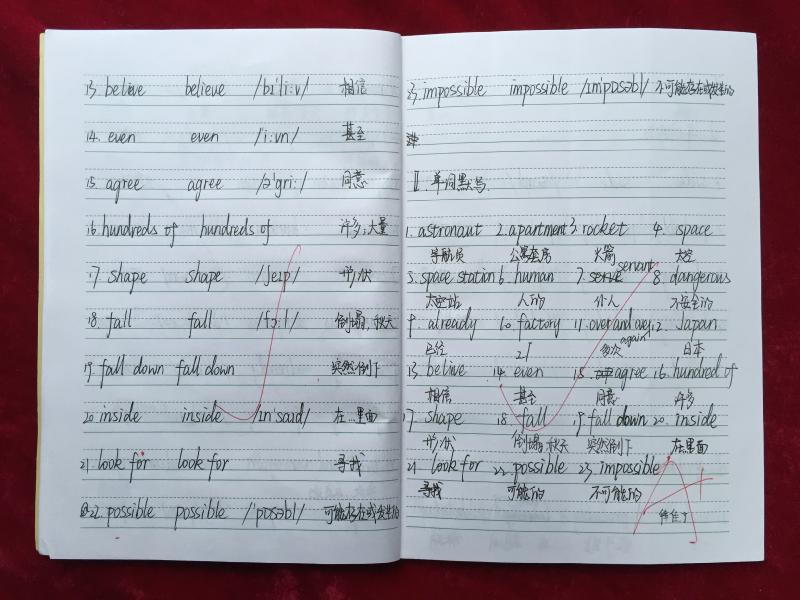 13. belive believe /bɪ'li:v/ 相信
14. even even /'i:vn/ 甚至
15. agree agree /ə'gri:/ 同意
16. hundreds of hundreds of 许多;大量
17. shape shape /ʃeɪp/ 形状
18. fall fall /fɔ:l/ 倒塌,秋天
19. fall down fall down 突然倒下
20. inside inside /ɪn'saɪd/ 在...里面
21. look for look for 寻找
22. possible possible /'pɒsəbl/ 可能存在或发生的
23. impossible impossible /ɪm'pɒsəbl/ 不可能存在或发生的
Ⅱ. 单词默写.
1. astronaut 2. apartment 3. rocket 4. space
导航员 公寓套房 火箭 太空
servant
5. space station 6. human 7. 8. dangerous
太空站 人的 仆人 不安全的
9. already 10. factory 11. over and over 12. Japan
again
已经 工厂 多次 日本
13. belive 14. even 15. agree 16. hundred of
相信 甚至 同意 许多
17. shape 18. fall 19. fall down 20. inside
形状 倒塌,秋天 突然倒下 在里面
21. look for 22. possible 23. impossible
寻找 可能的 不可能的